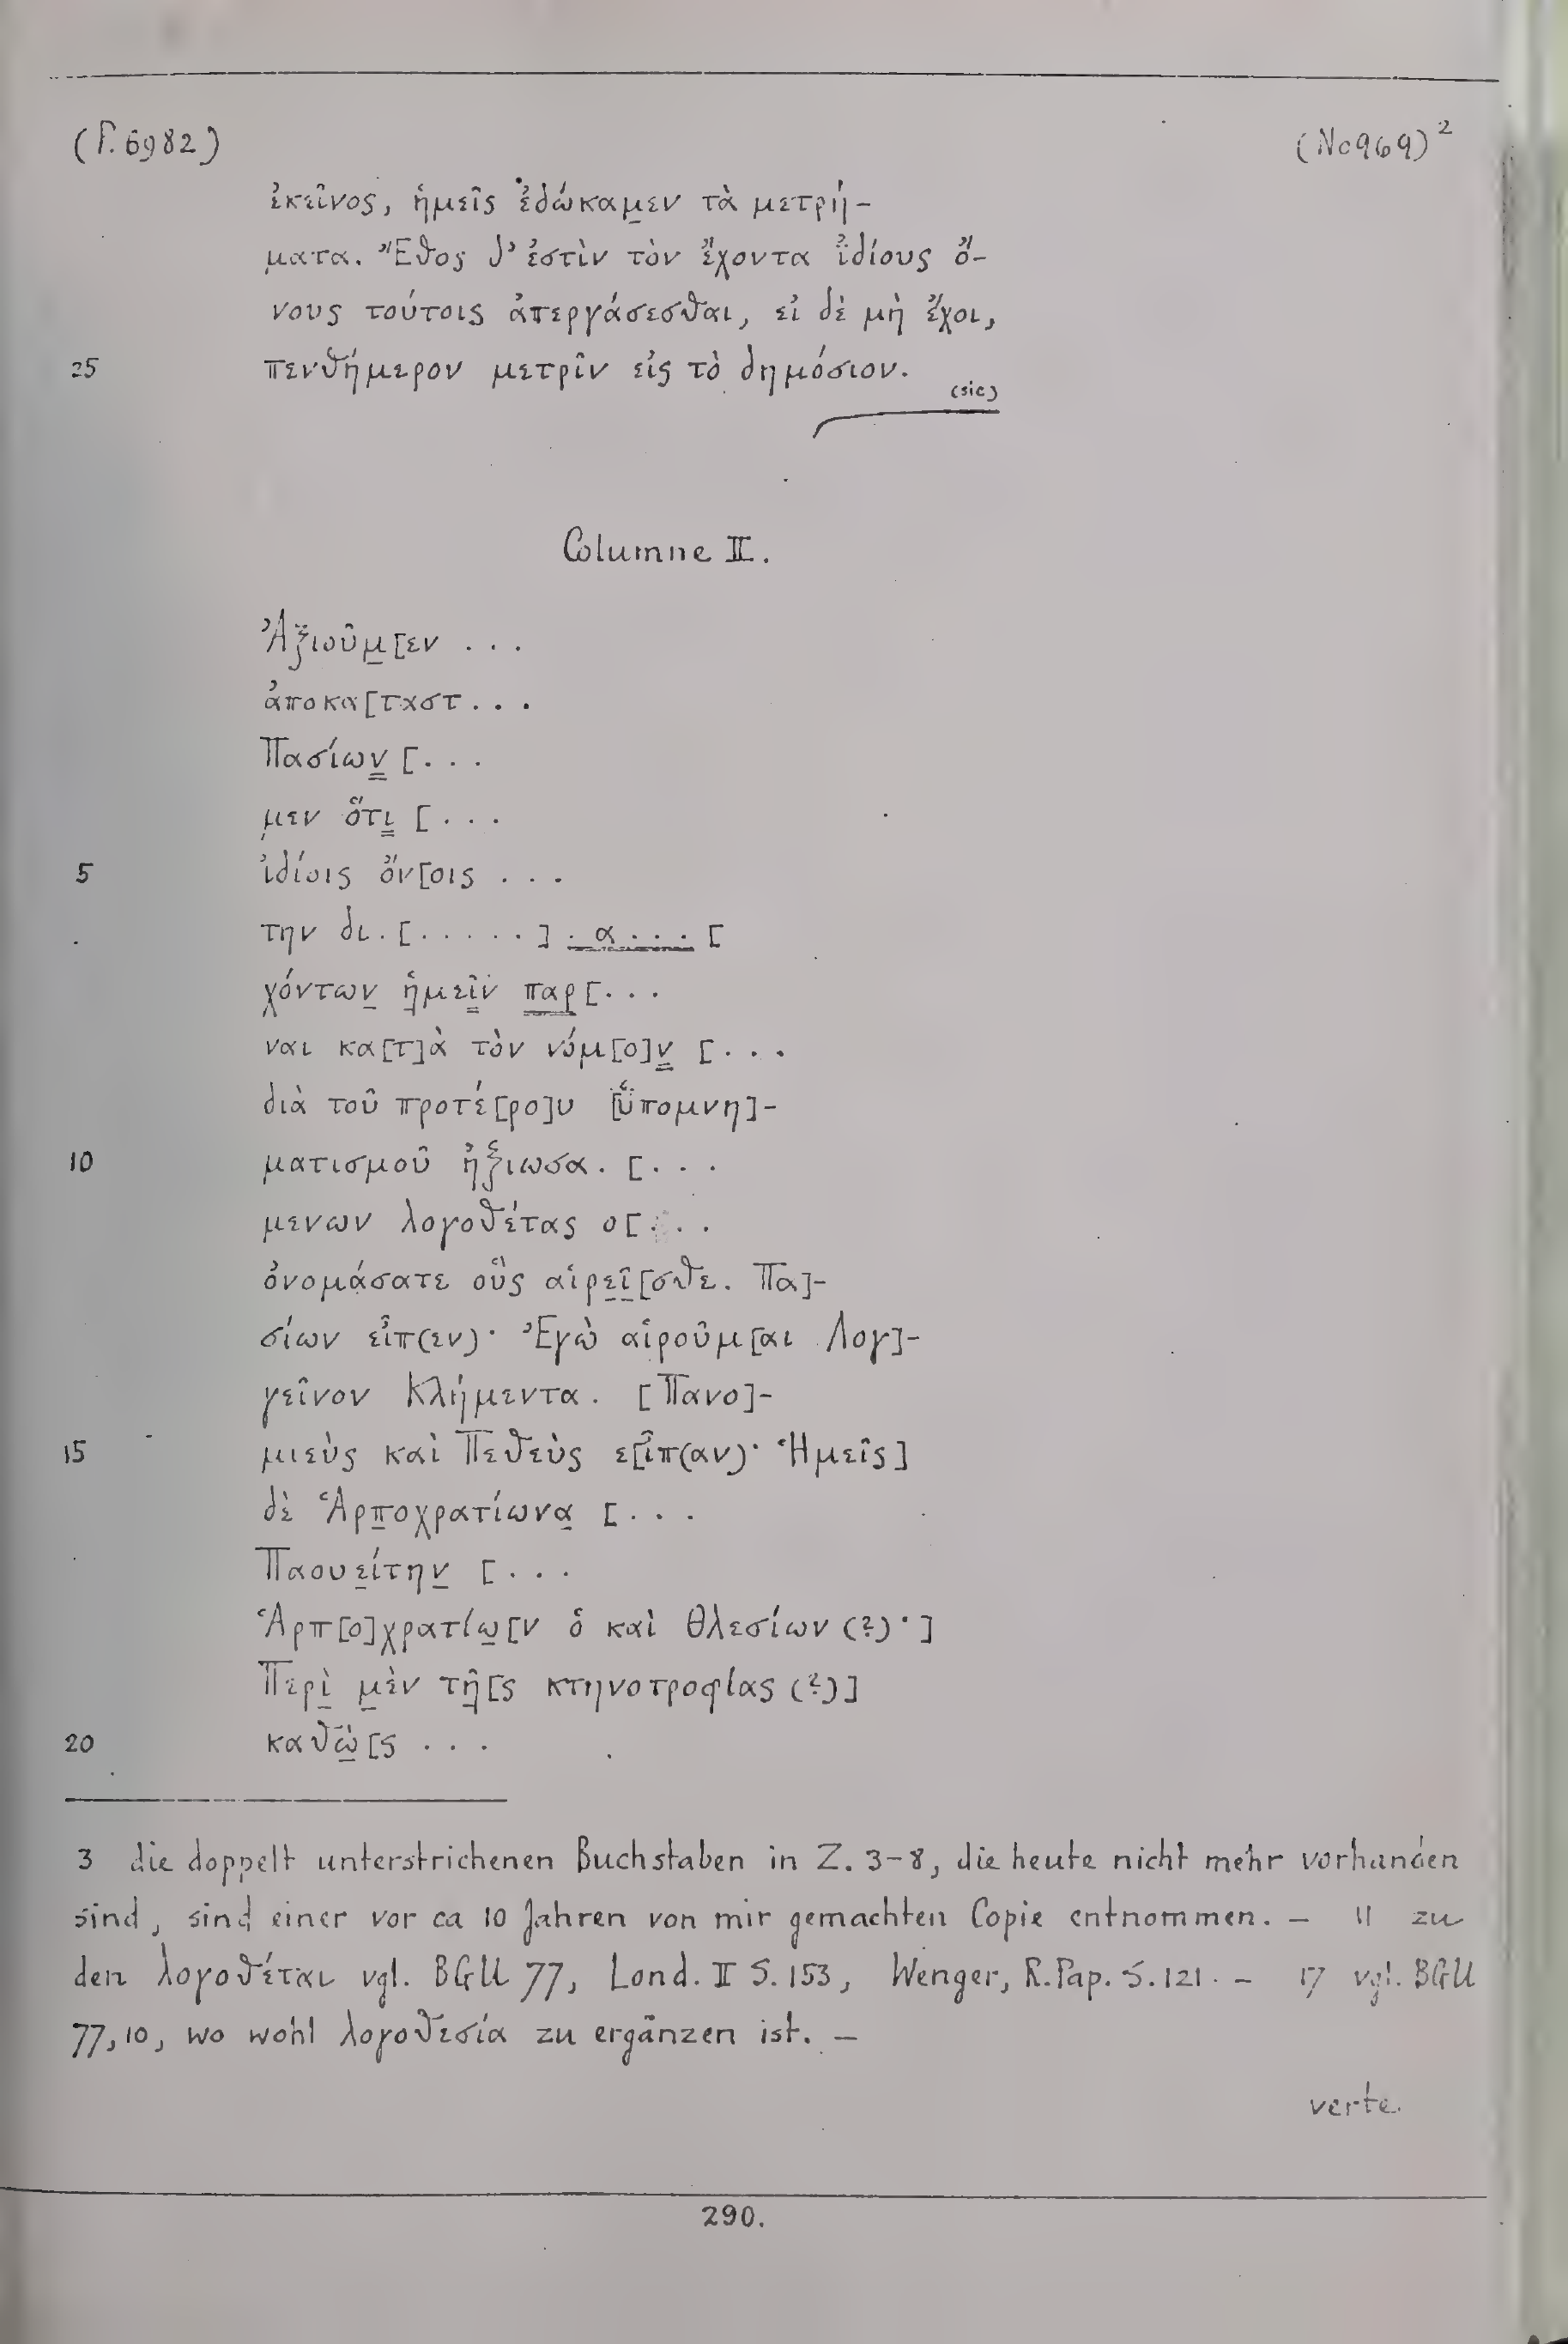 (P. 6982) (No 969)²
ἐκεῖνος, ἡμεῖς ἐδώκαμ̲εν τὰ μετρή-
ματα. Ἔθος δ’ ἐστὶν τὸν ἔχοντα ἰ̈δίους ὄ-
νους τούτοις ἀπεργάσεσθαι, εἰ δὲ μὴ ἔχοι,
25 πενθήμερον μετρῖν εἰς τὸ δημόσιον.
(sic)
Columne II.
Ἀξιοῦμ̲[εν . . .
ἀποκα[ταστ . . .
Πασίων̳ [. . .
μεν ὅτι̳ [. . .
5 ἰδίοις ὄν[οις . . .
την δι . [. . . . . ] . α . . . [
χόντων̲ ἡ̲μεῖ̳ν παρ [. . .
ναι κα[τ]ὰ τὸν νόμ[ο]ν̳ [. . .
διὰ τοῦ προτέ[ρο]υ [ὑ̈πομνη]-
10 ματισμοῦ ἠξιωσα. [. . .
μενων λογοθέτας ο[. . .
ὀνομάσατε οὓς αἱρε̲ῖ̲[σθε. Πα]-
σίων εἶπ(εν)· Ἐγὼ αἱροῦμ[αι Λογ]-
γεῖνον Κλήμεντα. [Πανο]-
15 μιεὺς καὶ Πεθεὺς ε[ἶπ(αν)· Ἡμεῖς]
δὲ Ἁρπ̲οχρατίωνα̲ [. . .
Παουε̲ίτην̲ [. . .
Ἁρπ[ο]χρατίω̲[ν ὁ καὶ Θλεσίων (?)·]
Περὶ̲ μ̲ὲν τῆ̲[ς κτηνοτροφίας (?)]
20 καθὼ̲[ς . . .
3 die doppelt unterstrichenen Buchstaben in Z. 3–8, die heute nicht mehr vorhanden
sind, sind einer vor ca 10 Jahren von mir gemachten Copie entnommen. – 11 zu
den λογοθέται vgl. BGU 77, Lond. II S. 153, Wenger, R. Pap. S. 121. – 17 vgl. BGU
77,10, wo wohl λογοθεσία zu ergänzen ist. –
verte.
290.